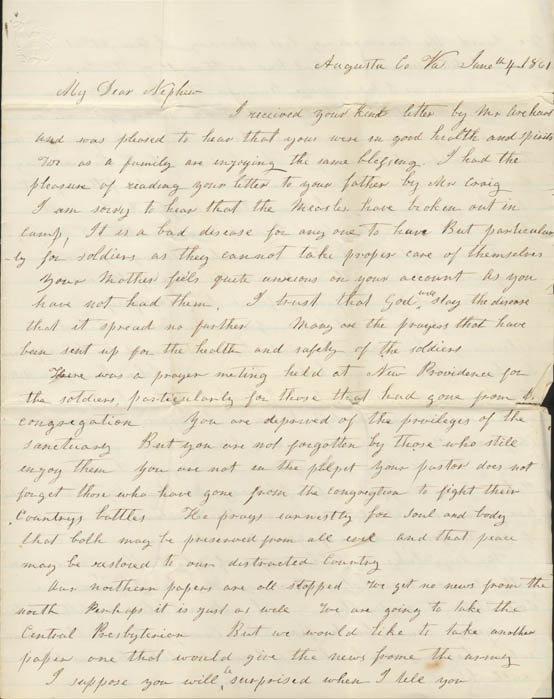 Augusta Co Va June th 4 1861
My Dear Nephew
I received your kind letter by Mr Arehart
and was pleased to hear that yous were in good health and spirits
We as a family are enjoying the same blessing. I had the
pleasure of reading your letter to your father by Mr Craig
I am sorry to hear that the Measles have broken out in
camp, It is a bad disease for any one to have But particular
-ly for soldiers as they cannot take proper care of themselves
Your Mother feels quite unxious on your account as you
have not had them. I trust that God will stay the disease
that it spread no further Many are the prayers that have
been sent up for the health and safety of the soldiers
There was a prayer meting held at New Providence for
the soldiers, particularly for those that had gone from
congregation You are deprived of the privileges of the
sanctuary But you are not forgotten by those who still
enjoy them you are not in the pulpet Your pastor does not
forget those who have gone from the congregtion to fight their
Countrys battles He prays earnestly for soul and body
that both may be preserved from all evel and that peace
may be restored to our distracted Country
Our northern papers are all stopped We get no news from the
north Perhaps it is just as well We are going to take the
Central Presbyterian But we would like to take another
paper one that would give the news frome the army
I suppose you will be surprised when I tell you